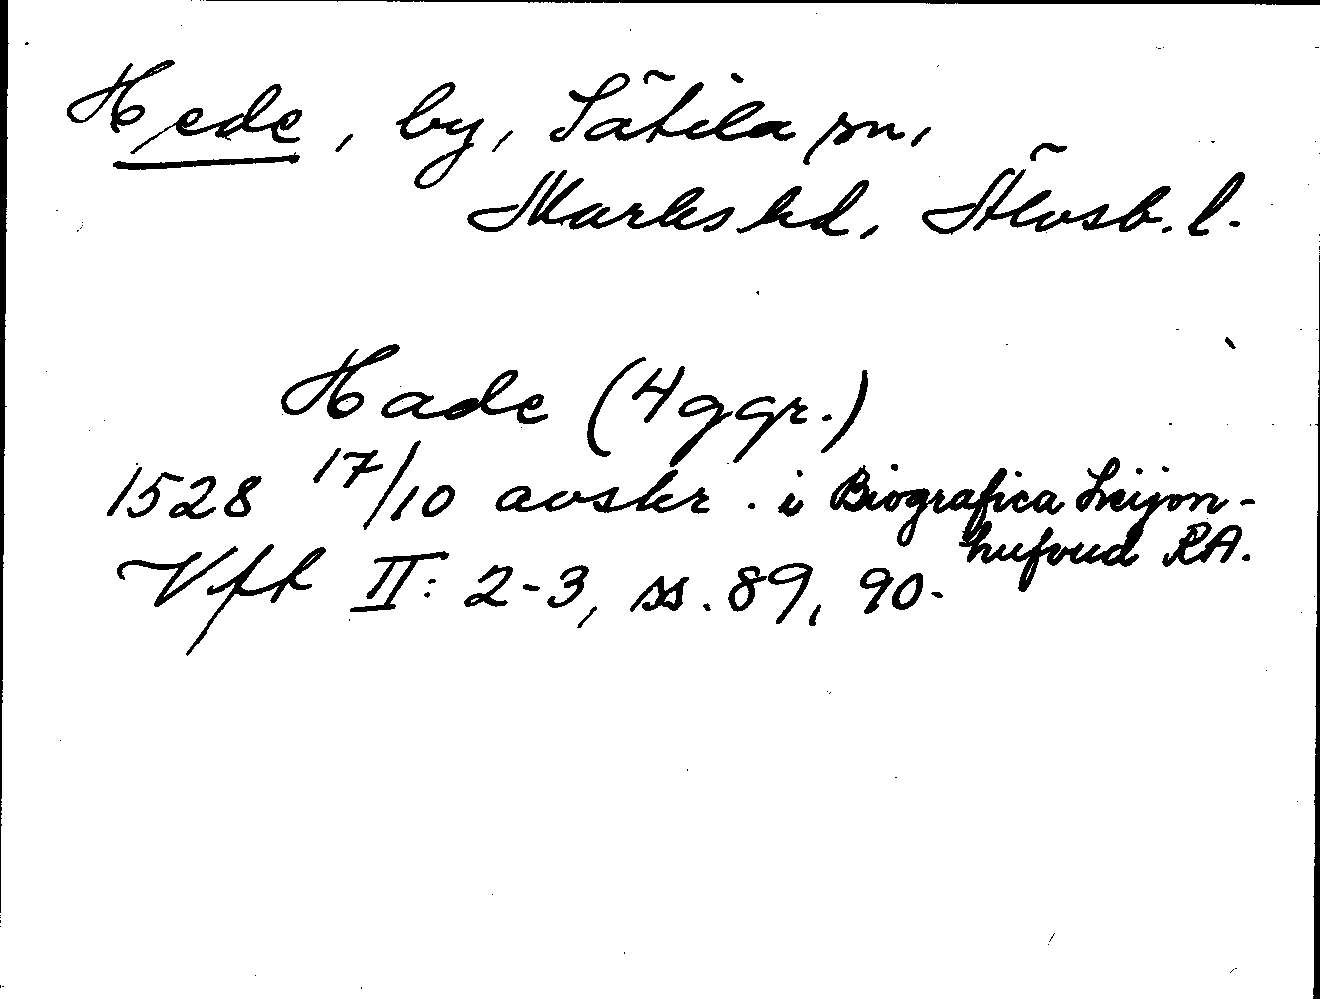 Hede, by, Sätila sn,
Marks hd, Älvsb. l.
Hade (4 ggr.)
1528 17/10 avskr. i Biografica Leijon-
hufvud RA.
Vft II: 2-3, ss. 89, 90.